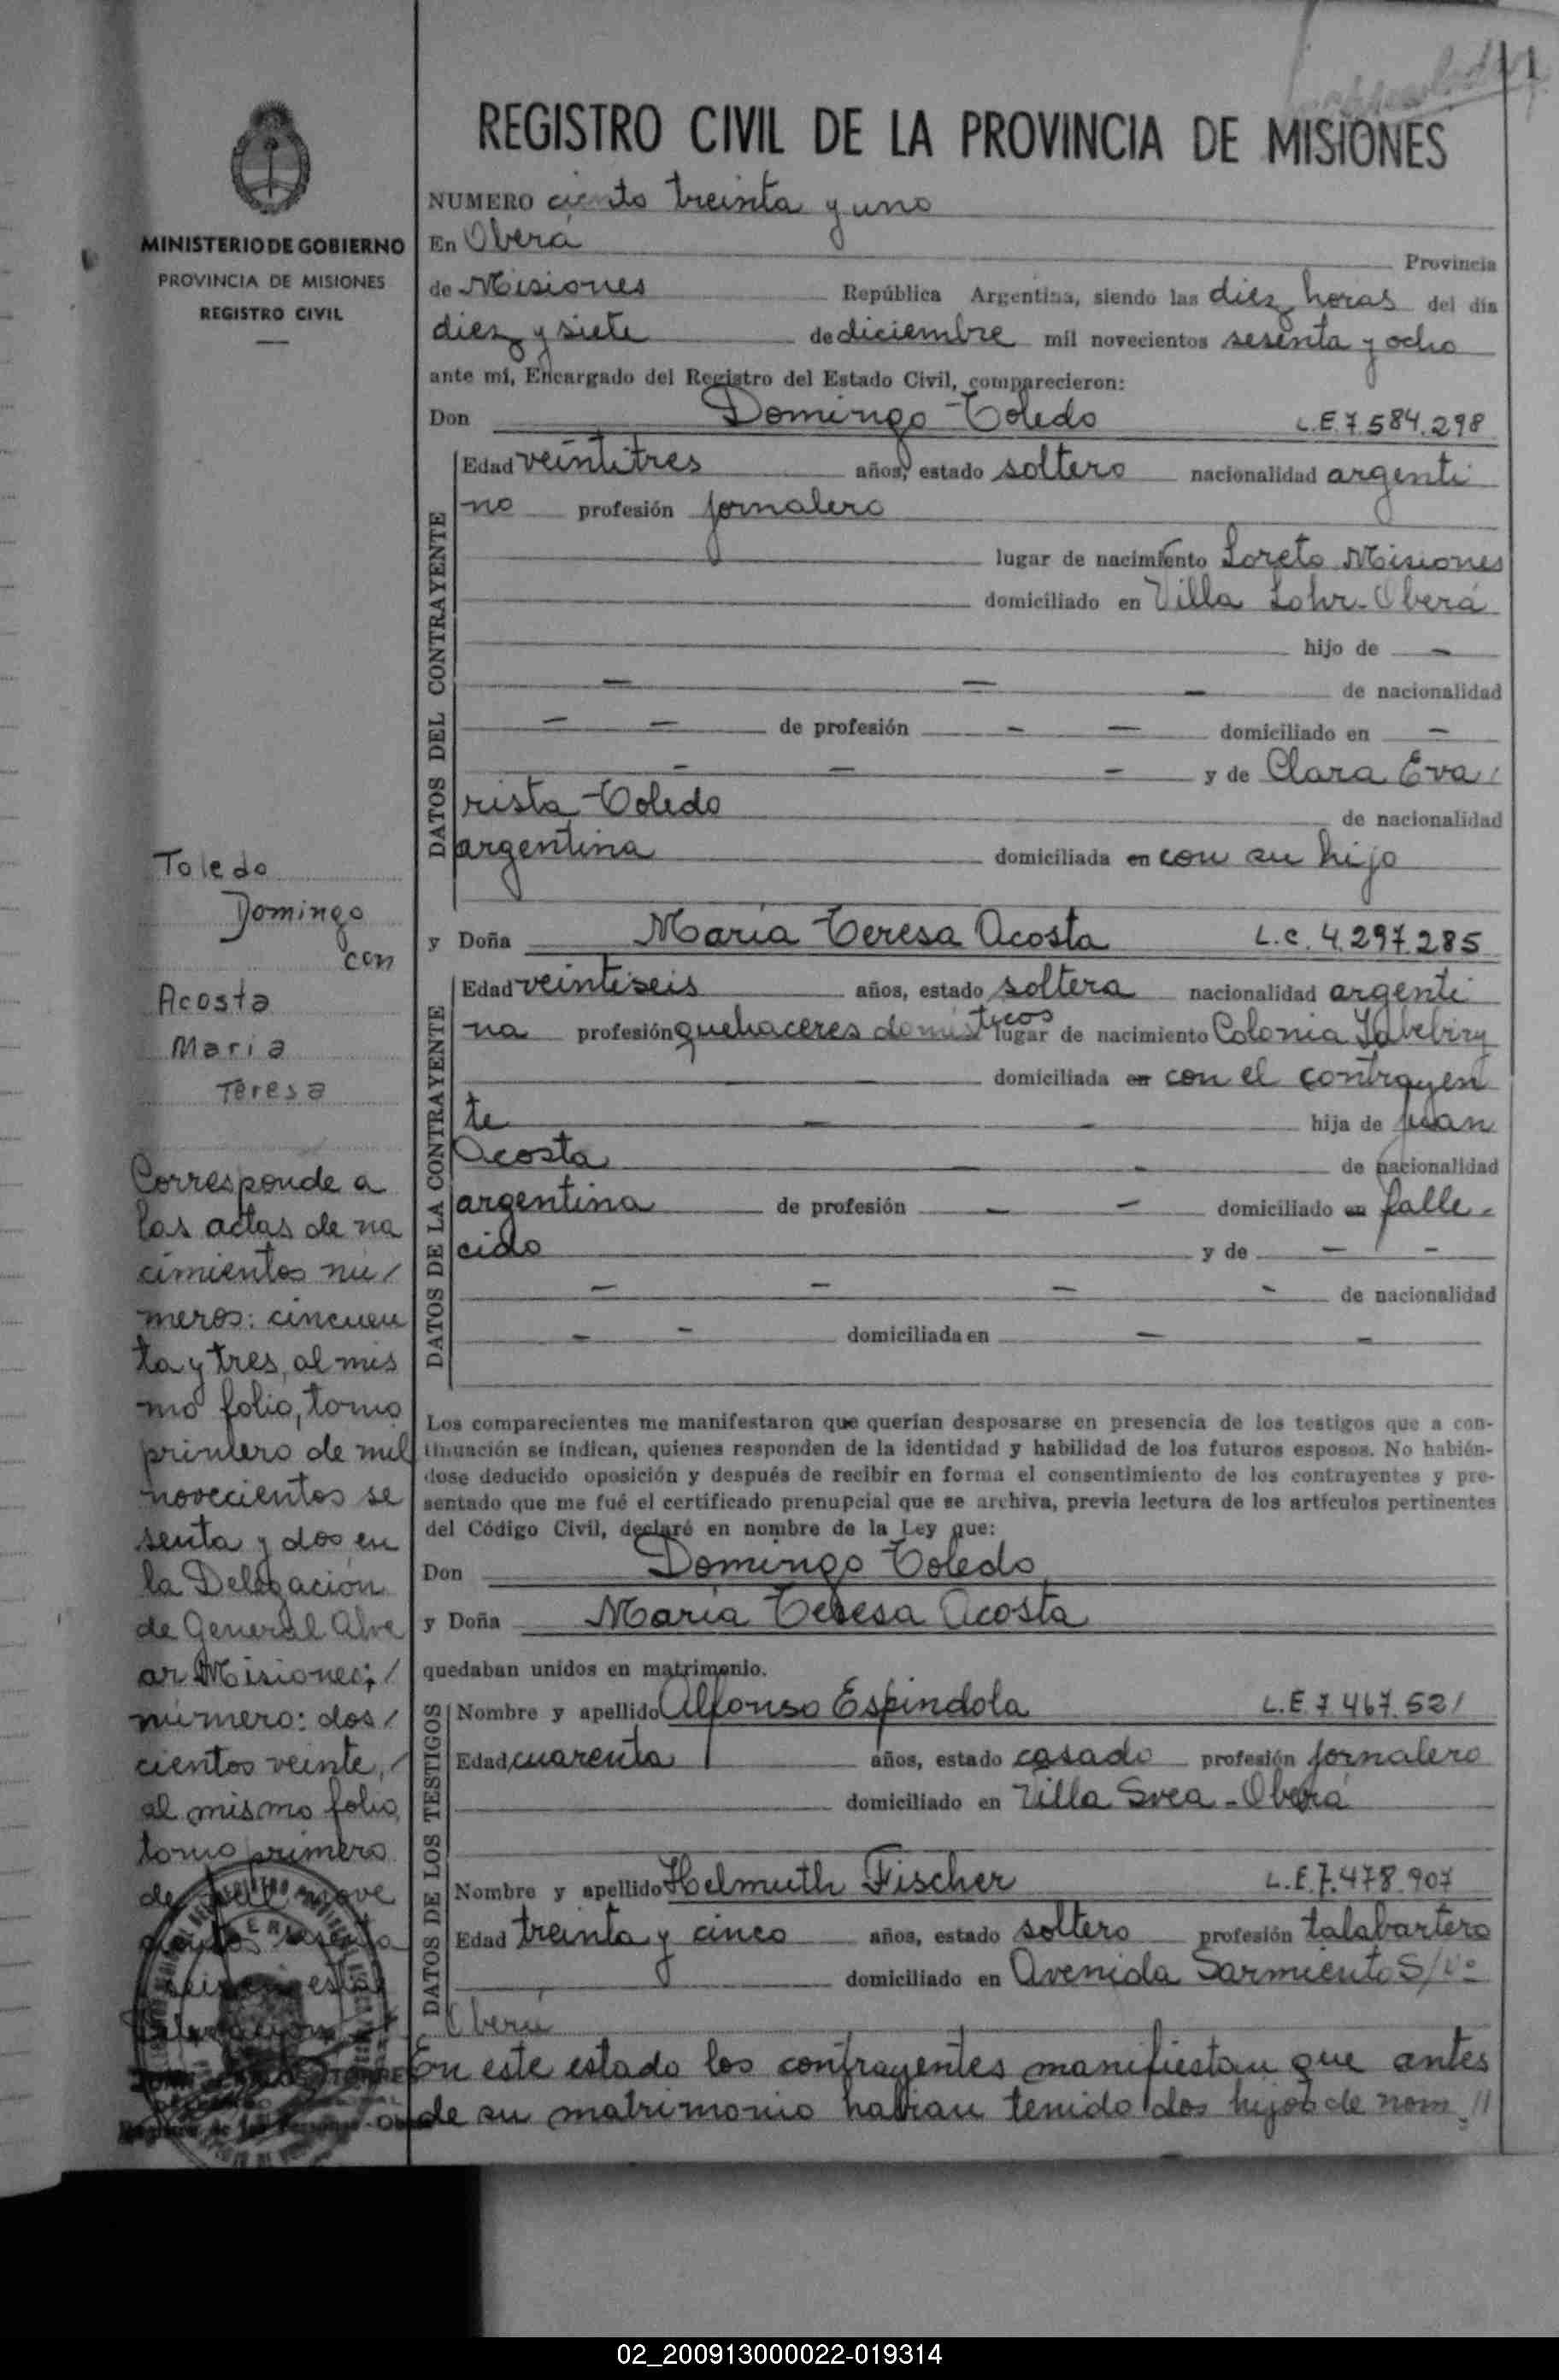 REGISTRO CIVIL DE LA PROVINCIA DE MISIONES
MINISTERIO DE GOBIERNO
PROVINCIA DE MISIONES
REGISTRO CIVIL
NUMERO ciento treinta y uno
En Oberá Provincia
de Misiones República Argentina, siendo las diez horas del día
diez y siete de diciembre mil novecientos sesenta y ocho
ante mí, Encargado del Registro del Estado Civil, comparecieron:
Don Domingo Toledo L.E. 7.584.298
DATOS DEL CONTRAYENTE
Edad veintitres años, estado soltero nacionalidad argenti
no profesión jornalero
lugar de nacimiento Loreto Misiones
domiciliado en Villa Lohr-Oberá
hijo de —
— — — de nacionalidad
— — de profesión — — domiciliado en —
— — — y de Clara Eva/
rista Toledo de nacionalidad
argentina domiciliada en con su hijo
y Doña María Teresa Acosta L.C. 4.297.285
DATOS DE LA CONTRAYENTE
Edad veintiseis años, estado soltera nacionalidad argenti
na profesión quehaceres domésticos lugar de nacimiento Colonia Yabebiry
domiciliada en con el contrayen
te — — hija de Juan
Acosta — — de nacionalidad
argentina de profesión — — domiciliado en falle-
cido y de — —
— — — — de nacionalidad
— — domiciliada en — —
Los comparecientes me manifestaron que querían desposarse en presencia de los testigos que a con-
tinuación se indican, quienes responden de la identidad y habilidad de los futuros esposos. No habién-
dose deducido oposición y después de recibir en forma el consentimiento de los contrayentes y pre-
sentado que me fué el certificado prenupcial que se archiva, previa lectura de los artículos pertinentes
del Código Civil, declaré en nombre de la Ley que:
Don Domingo Toledo
y Doña María Teresa Acosta
quedaban unidos en matrimonio.
DATOS DE LOS TESTIGOS
Nombre y apellido Alfonso Espindola L.E. 7.467.521
Edad cuarenta años, estado casado profesión jornalero
domiciliado en Villa Svea-Oberá
Nombre y apellido Helmuth Fischer L.E. 7.478.907
Edad treinta y cinco años, estado soltero profesión talabartero
domiciliado en Avenida Sarmiento S/Nº
Oberá
En este estado los contrayentes manifiestan que antes
de su matrimonio habian tenido dos hijos de nom-//
Toledo
Domingo
con
Acosta
Maria
Teresa
Corresponde a
las actas de na
cimientos nú/
meros: cincuen
ta y tres, al mis
mo folio, tomo
primero de mil
novecientos se
senta y dos en
la Delegación
de General Alve
ar Misiones; /
número: dos/
cientos veinte, /
al mismo folio,
tomo primero
de mil nove
cientos sesenta
02_200913000022-019314